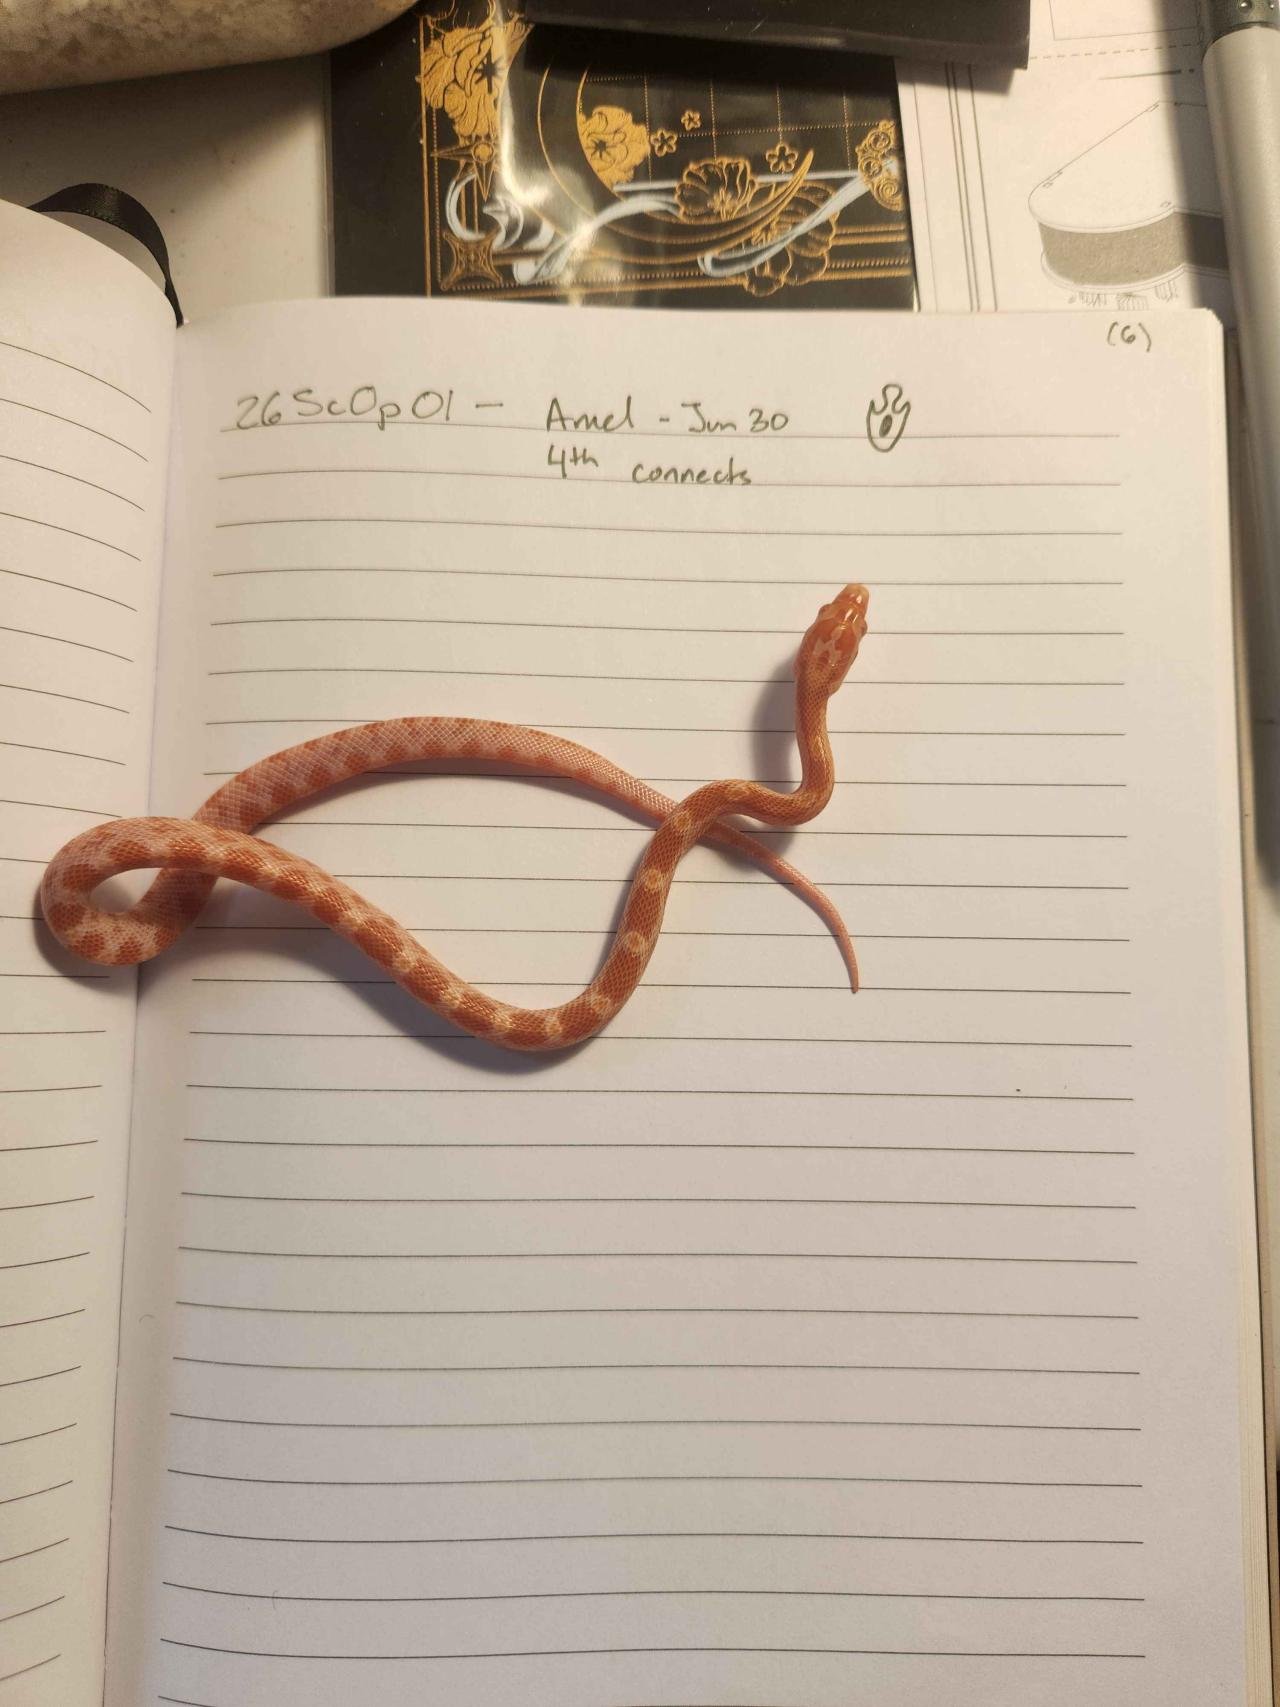 (6)
26ScOp01 - Amel - Jun 30
4th connects